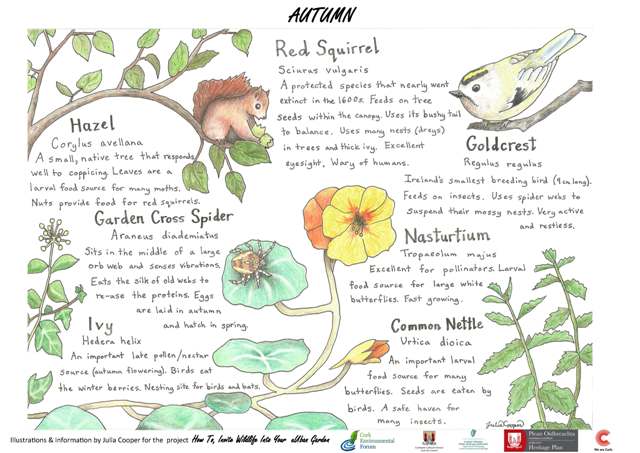 AUTUMN
Red Squirrel
Sciurus vulgaris
A protected species that nearly went
extinct in the 1600s. Feeds on tree
seeds within the canopy. Uses its bushy tail
to balance. Uses many nests (dreys)
in trees and thick ivy. Excellent
eyesight. Wary of humans.
Goldcrest
Regulus regulus
Ireland's smallest breeding bird (9cm long).
Feeds on insects. Uses spider webs to
suspend their mossy nests. Very active
and restless.
Hazel
Corylus avellana
A small, native tree that responds
well to coppicing. Leaves are a
larval food source for many moths.
Nuts provide food for red squirrels.
Garden Cross Spider
Araneus diadematus
Sits in the middle of a large
orb web and senses vibrations.
Eats the silk of old webs to
re-use the proteins. Eggs
are laid in autumn
and hatch in spring.
Nasturtium
Tropaeolum majus
Excellent for pollinators. Larval
food source for large white
butterflies. Fast growing.
Ivy
Hedera helix
An important late pollen/nectar
source (autumn flowering). Birds eat
the winter berries. Nesting site for birds and bats.
Common Nettle
Urtica dioica
An important larval
food source for many
butterflies. Seeds are eaten by
birds. A safe haven for
many insects.
Julia Cooper
Illustrations & information by Julia Cooper for the project How To, Invite Wildlife Into Your Urban Garden
Cork
Environmental
Forum
Plean Oidhreachta
Heritage Plan
We are Cork